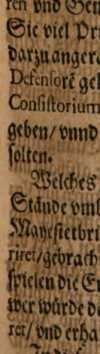 ren vnd
Sie viel
darzu anger
Defensorē ge
Consistorium
geben/ vnnd
solten.
Welches
Stände vmb
Mayestetbri
riret/gebrach
spielen die
wer würde d
ret/ vnd erha